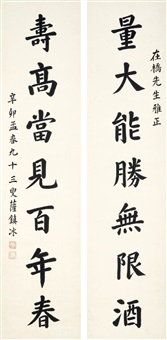 在橋先生雅正
量大能勝無限酒
壽高當見百年春
辛卯孟春九十三叟薩鎮冰